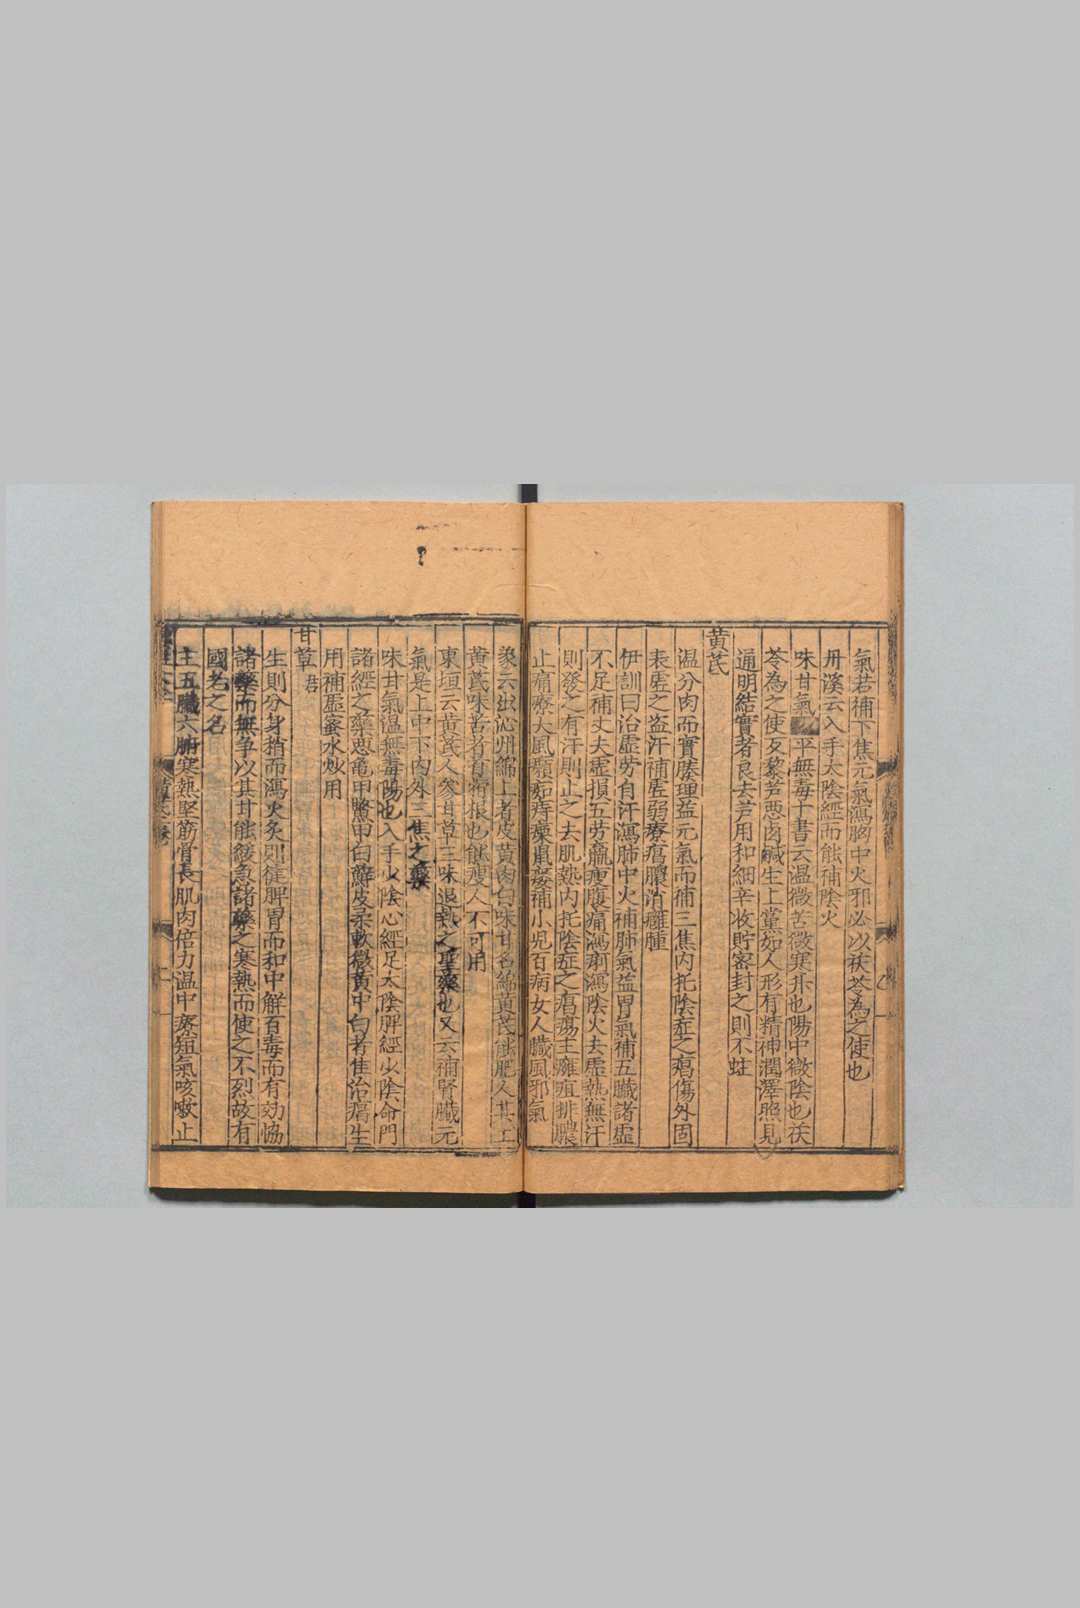 氣若補下焦元氣瀉胸中火邪必以茯苓為之使也
丹溪云入手太陰經而能補陰火
味甘氣平無毒十書云温微苦微寒升也陽中微陰也茯
苓為之使反藜芦惡鹵鹹生上黨如人形有精神潤澤照見
通明結實者良去芦用和細辛收貯密封之則不蛀
黄芪
温分肉而實腠理益元氣而補三焦内托陰症之瘡傷外固
表虚之盗汗補虚弱療瘡膿治癰腫
伊訓曰治虚劳自汗瀉肺中火補肺氣益胃氣補五臓諸虚
不足補丈夫虚損五劳羸瘦腹痛瀉痢瀉陰火去虚熱無汗
則發之有汗則止之去肌熱内托陰症之瘡瘍主癰疽排膿
止痛療大風癩茹痔瘻鼠瘻補小児百病女人臓風邪氣
象云出沁州綿上者皮黄肉白味甘名綿黄芪能肥人其
黄芪味苦者有宿根也能瘦人不可用
東垣云黄芪人參甘草三味退熱之聖藥也又云補腎臓元
氣是上中下内外三焦之藥
味甘氣温無毒陽也入手少陰心經足太陰脾經少陰命門
諸經之藥惡亀甲鱉甲白蘚皮柔軟微黄中白者佳治瘍生
用補虚蜜水炒用
甘草 君
生則分身稍而瀉火炙則健脾胃而和中解百毒而有効恊
諸藥而無争以其甘能緩急諸藥之寒熱而使之不烈故有
國老之名
主五臓六腑寒熱堅筋骨長肌肉倍力温中療短氣咳嗽止